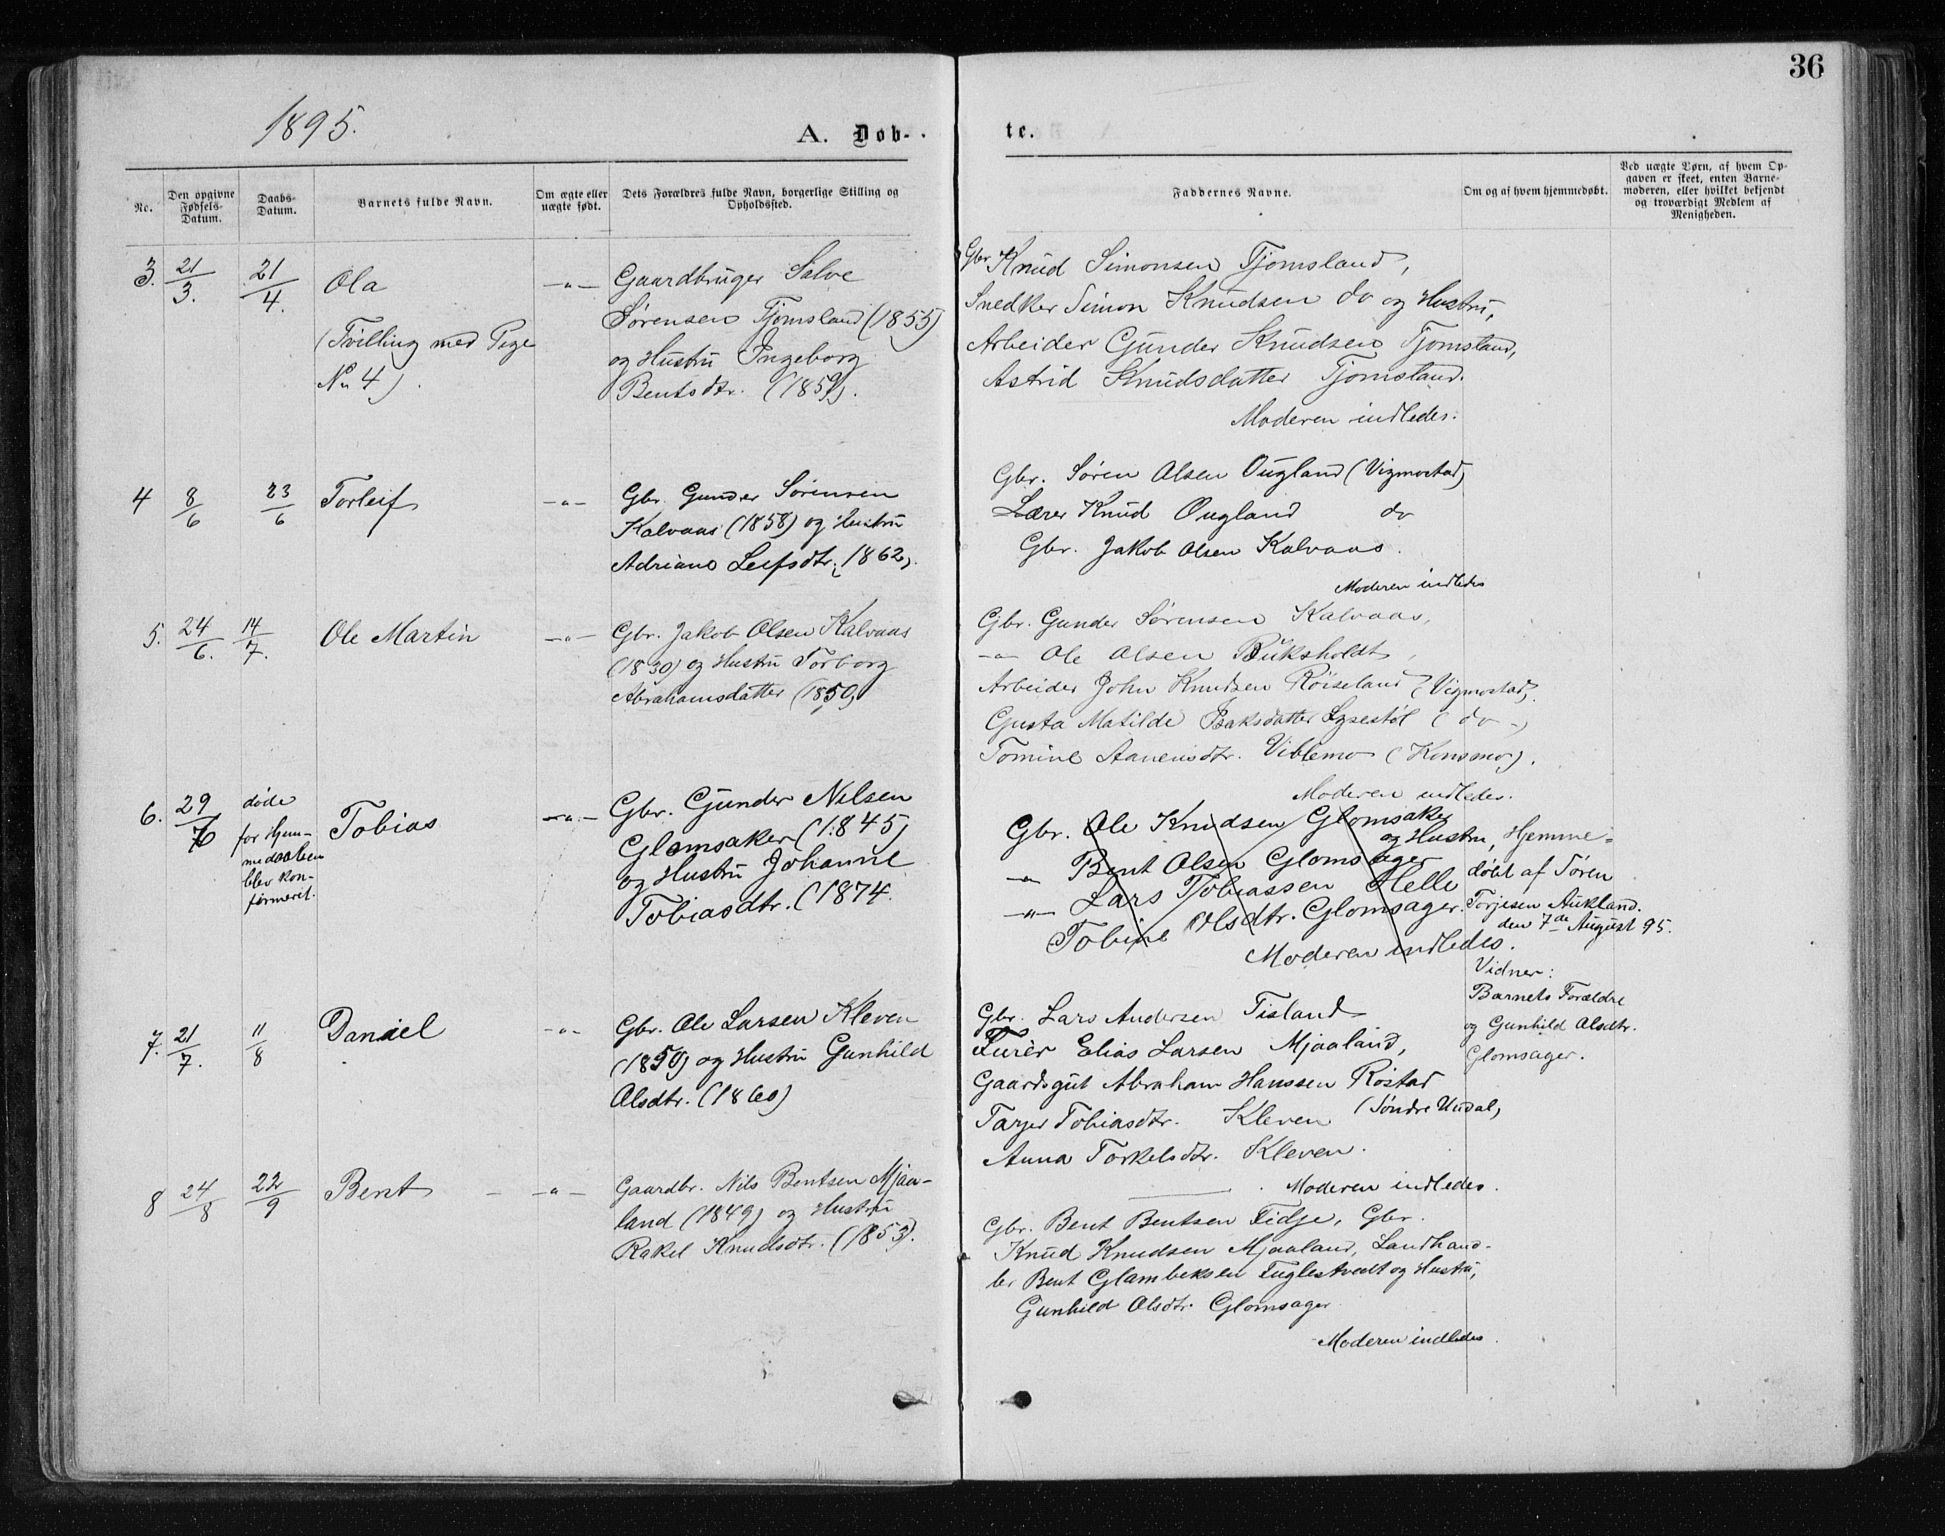 36
1895.
A. Døb-
te.
No.
Den opgivne Fødsels-Datum.
Daabs-Datum.
Barnets fulde Navn.
Om ægte eller uægte født.
Dets Forældres fulde Navn, borgerlige Stilling og Opholdssted.
Faddernes Navne.
Om og af hvem hjemmedøbt.
Ved uægte Børn, af hvem Op-
gaven er skeet, enten Barne-
moderen, eller hvilket bekjendt
og troværdigt Medlem af
Menigheden.
3. 21/3. 21/4. Ola
(Tvilling med Pige
No 4).
-"-
Gaardbruger Salve
Sørensen Tjomsland (1855)
og Hustru Ingeborg
Bentsdtr. (1859).
Gbr. Knud Simonsen Tjomsland,
Snedker Simon Knudsen do og Hustru,
Arbeider Gunder Knudsen Tjomsland,
Astrid Knudsdatter Tjomsland.
Moderen indledes.
4 8/6 23/6 Torleif
-"-
Gbr. Gunder Sørensen
Kalvaas (1858) og Hustru
Adriane Leifsdtr. (1862).
Gbr. Søren Olsen Ougland (Vigmostad)
Lærer Knud Ougland do
Gbr. Jakob Olsen Kalvaas.
Moderen indledes
5. 24/6. 14/7. Ole Martin
-"-
Gbr. Jakob Olsen Kalvaas
(1830) og Hustru Torborg
Abrahamsdatter (1850)
Gbr. Gunder Sørensen Kalvaas,
-"- Ole Olsen Buksholdt,
Arbeider John Knudsen Røiseland (Vigmostad),
Gusta Matilde Isaksdatter Lysestøl (do-)
Tomine Aanensdtr. Viblemo (Konsmo).
Moderen indledes.
6. 29/7 døde
for Hjem-
medaaben
blev kon-
firmeret.
Tobias
-"-
Gbr. Gunder Nilsen
Glomsaker (1845)
og Hustru Johanne
Tobiasdtr. (1874.
Gbr. Ole Knudsen Glomsaker
og Hustru,
-"- Bent Olsen Glomsager
-"- Lars Tobiassen Helle
Tobine Olsdtr. Glomsager.
Moderen indledes.
Hjemme-
døbt af Søren
Torjesen Aukland.
den 7de August 95.
Vidner:
Barnets Forældre
og Gunhild Olsdtr.
Glomsager.
7. 21/7. 11/8 Daniel
-"-
Gbr. Ole Larsen Kleven
(1850) og Hustru Gunhild
Olsdtr. (1860)
Gbr. Lars Andersen Tisland
Furér Elias Larsen Mjaaland,
Gaardsgut Abraham Hanssen Røstad
(Søndre Undal)
Tarjer Tobiasdtr. Kleven
Anna Torkelsdtr. Kleven.
Moderen indledes.
8 24/8 22/9 Bent
-"-
Gaardbr. Nils Bentsen Mjaa-
land (1849) og Hustru
Rakel Knudsdtr. (1853).
Gbr. Bent Bentsen Fidje, Gbr.
Knud Knudsen Mjaaland, Landhand-
ler Bent Glambeksen Fuglestvedt og Hustru,
Gunhild Olsdtr. Glomsager
Moderen indledes.